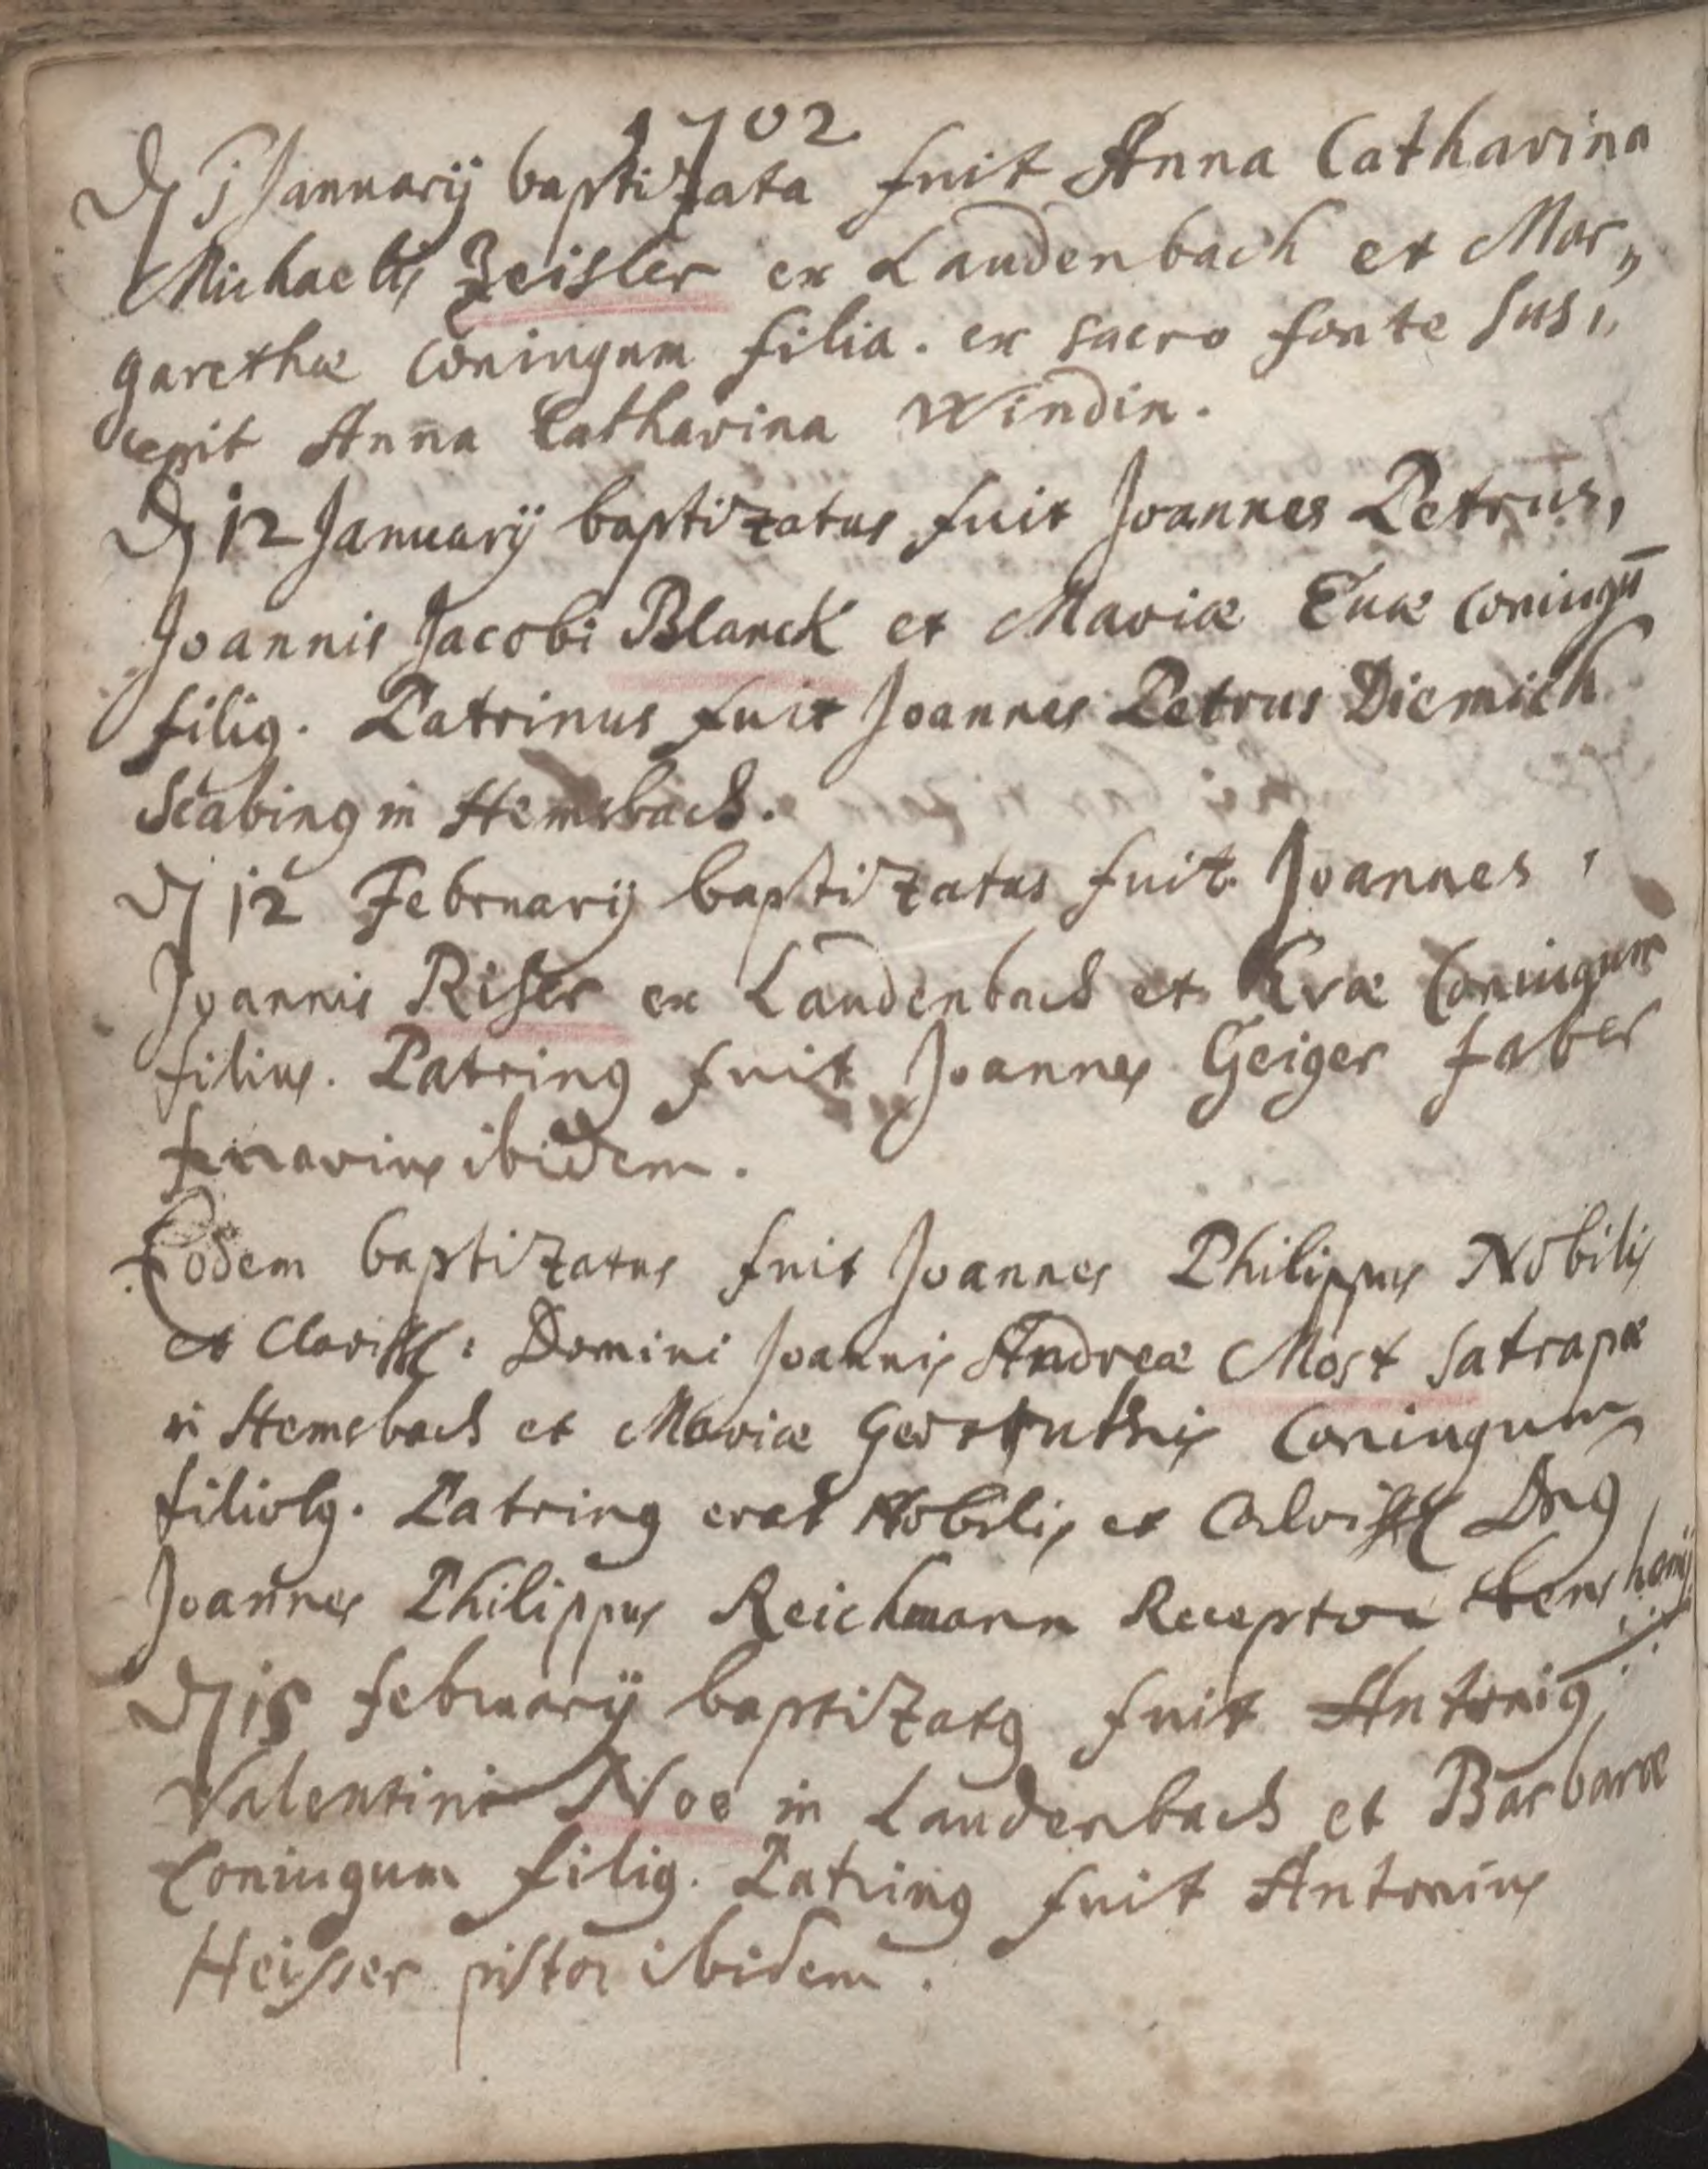 1702
D 5 Januarij baptizata fuit Anna Catharina
Michaelis Zeisler ex Laudenbach et Mar„
garethæ Coniugum filia. ex sacro fonte susi„
cepit Anna Catharina Windin.
D 12 Januarij baptizatus fuit Joannes Petrus,
Joannis Jacobi Blanck et Mariæ Euæ Coniugū
filig. Patrinus fuit Joannes Petrus Diemich
Scabing in Hemsbach.
D 12 Februarij baptizatus fuit Joannes,
Joannis Riser ex Laudenbach et Evæ Coniugum
filius. Patring fuit Joannes Geiger faber
ferrarius ibidem.
Eodem baptizatus fuit Joannes Philippus Nobilis
et Clariss: Domini Joannis Andreæ Most Satrapæ
in Hemsbach et Mariæ Gertruthis Coniugum
filiolg. Patring erat Nobilis et Clariss Dng
Joannes Philippus Reichmann Receptor
D 18 februarij baptizatg fuit Antonig
Valentini Noe in Laudenbach et Barbaræ
Coniugum filig. Patring fuit Antonius
Heisser pistor ibidem.